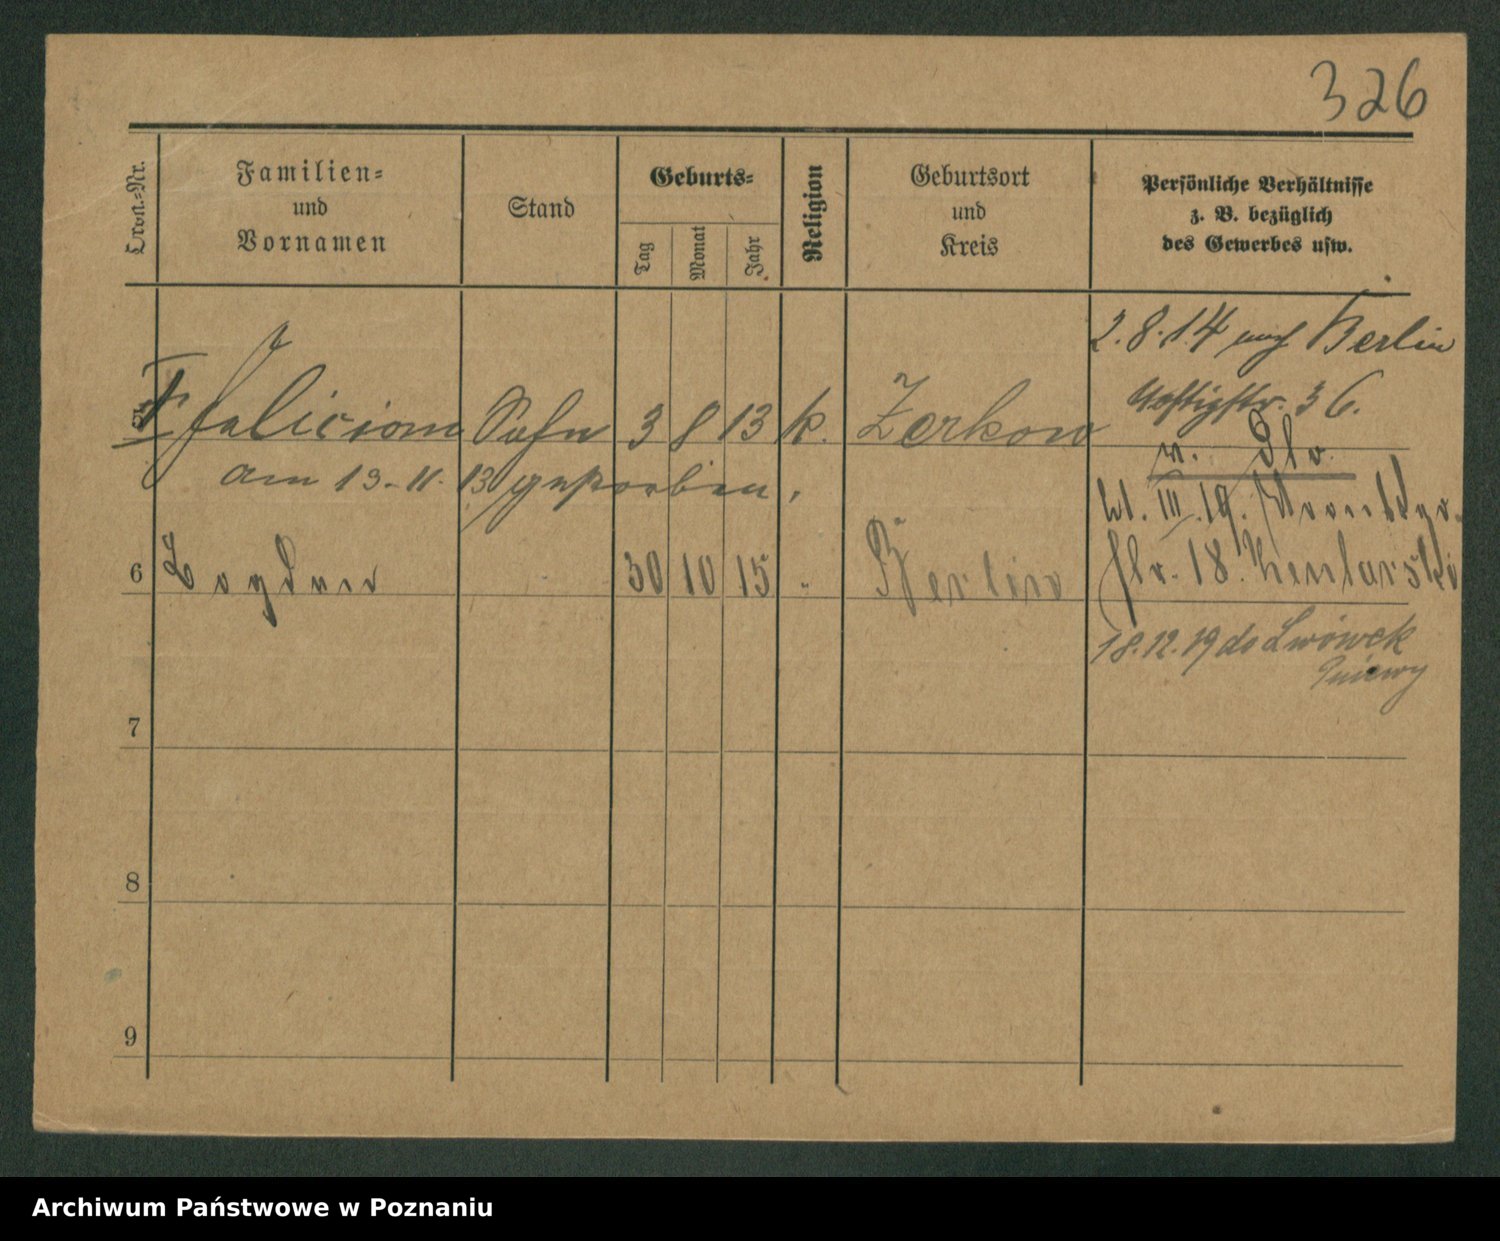 326
Lfd.-Nr.
Familien-
und
Vornamen
Stand
Geburts-
Tag
Monat
Jahr
Religion
Geburtsort
und
Kreis
Persönliche Verhältnisse
z. B. bezüglich
des Gewerbes usw.
2.8.14 nach Berlin
36.
Felician Sohn 3 8 13 k. Zerkow
am 13.11.13 gestorben.
III.19.
6 Bogdan 30 10 15 " Berlin
18.
18.12.19 do Lwówek
Pniewy
7
8
9
Archiwum Państwowe w Poznaniu